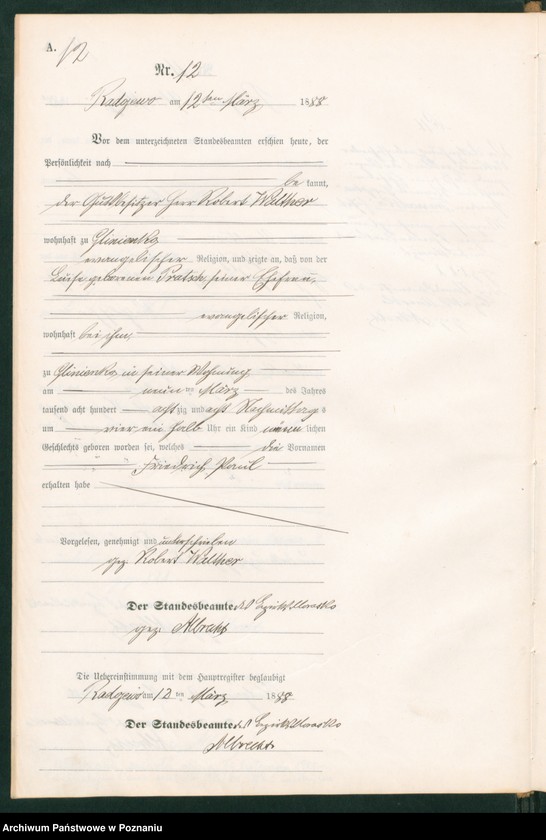 A. 12
Nr. 12
Radojewo am 12ten März 1888
Vor dem unterzeichneten Standesbeamten erschien heute, der
Persönlichkeit nach
be kannt,
der Gutsbesitzer Herr Robert Walther
wohnhaft zu Glinienko
evangelischer Religion, und zeigte an, daß von der
Luise geborenen Pratsch, seiner Ehefrau,
evangelischer Religion,
wohnhaft bei ihm,
zu Glinienko in seiner Wohnung
am neun ten März des Jahres
tausend acht hundert acht zig und acht Nachmittag s
um vier ein halb Uhr ein Kind männ lichen
Geschlechts geboren worden sei, welches die Vornamen
Friedrich Paul
erhalten habe
Vorgelesen, genehmigt und unterschrieben
gez. Robert Walther
Der Standesbeamte des Bezirks Morasko
gez. Albrecht
Die Uebereinstimmung mit dem Hauptregister beglaubigt
Radojewo am 12 ten März 1888
Der Standesbeamte des Bezirks Morasko
Albrecht
Archiwum Państwowe w Poznaniu